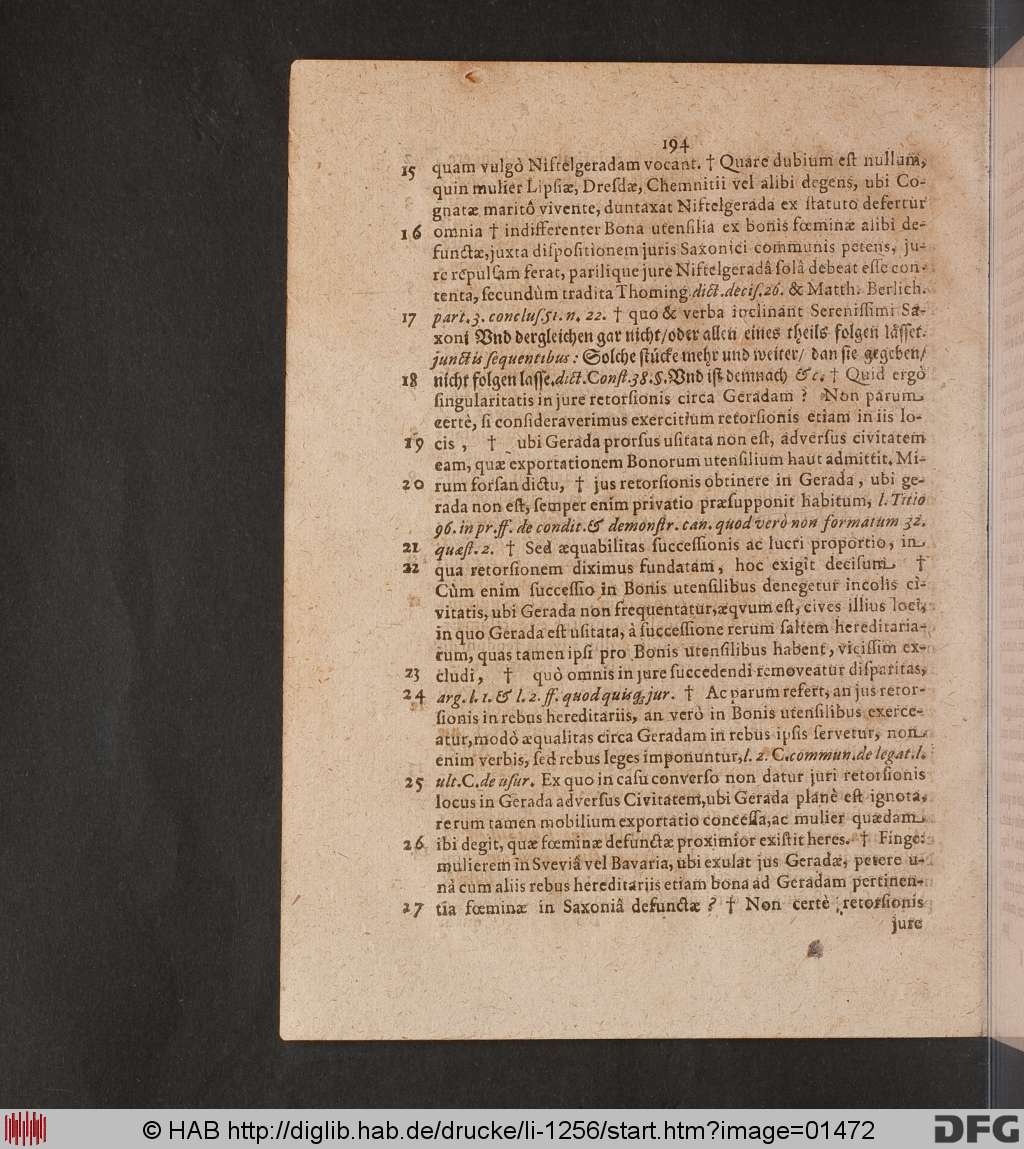 194
15 quam vulgò Niſtelgeradam vocant. † Quare dubium eſt nullum,
quin mulier Lipſiæ, Dreſdæ, Chemnitii vel alibi degens, ubi Co-
gnatæ maritô vivente, duntaxat Niftelgerada ex ſtatuto defertur
16 omnia † indifferenter Bona utenſilia ex bonis fœminæ alibi de-
functæ, juxta diſpoſitionem juris Saxonici communis petens, ju-
re repulſam ferat, parilique jure Niftelgeradâ ſolâ debeat eſſe con-
tenta, ſecundùm tradita Thoming. dict. deciſ. 26. & Matth. Berlich.
17 part. 3. concluſ. 51. n. 22. † quo & verba inclinant Sereniſſimi Sa-
xoni Vnd dergleichen gar nicht/ oder allen eines theils folgen läſſet.
junctis ſequentibus: Solche ſtücke mehr und weiter/ dan ſie gegeben/
18 nicht folgen laſſe. dict. Conſt. 38. §. Vnd iſt demnach &c. † Quid ergò
ſingularitatis in jure retorſionis circa Geradam? Non parum
certè, ſi conſideraverimus exercitium retorſionis etiam in iis lo-
19 cis, † ubi Gerada prorſus uſitata non eſt, adverſus civitatem
eam, quæ exportationem Bonorum utenſilium haut admittit. Mi-
20 rum forſan dictu, † jus retorſionis obtinere in Gerada, ubi ge-
rada non eſt, ſemper enim privatio præſupponit habitum, l. Titio
96. in pr. ff. de condit. & demonſtr. can. quod verò non formatum 32.
21 quæſt. 2. † Sed æquabilitas ſucceſſionis ac lucri proportio, in
22 qua retorſionem diximus fundatam, hoc exigit deciſum †
Cùm enim ſucceſſio in Bonis utenſilibus denegetur incolis ci-
vitatis, ubi Gerada non frequentatur, æqvum eſt, cives illius loci,
in quo Gerada eſt uſitata, à ſucceſſione rerum ſaltem hereditaria-
rum, quas tamen ipſi pro Bonis utenſilibus habent, viciſſim ex-
23 cludi, † quò omnis in jure ſuccedendi removeatur diſparitas,
24 arg. l. 1. & l. 2. ff. quod quisq; jur. † Ac parum refert, an jus retor-
ſionis in rebus hereditariis, an verò in Bonis utenſilibus exerce-
atur, modò æqualitas circa Geradam in rebus ipſis ſervetur, non
enim verbis, ſed rebus leges imponuntur, l. 2. C. commun. de legat. l.
25 ult. C. de uſur. Ex quo in caſu converſo non datur juri retorſionis
locus in Gerada adverſus Civitatem, ubi Gerada planè eſt ignota,
rerum tamen mobilium exportatio conceſſa, ac mulier quædam
26 ibi degit, quæ fœminæ defunctæ proximior exiſtit heres. † Finge:
mulierem in Sveviâ vel Bavaria, ubi exulat jus Geradæ, petere u-
nà cum aliis rebus hereditariis etiam bona ad Geradam pertinen-
27 tia fœminæ in Saxoniâ defunctæ? † Non certè retorſionis
jure
© HAB http://diglib.hab.de/drucke/li-1256/start.htm?image=01472
DFG